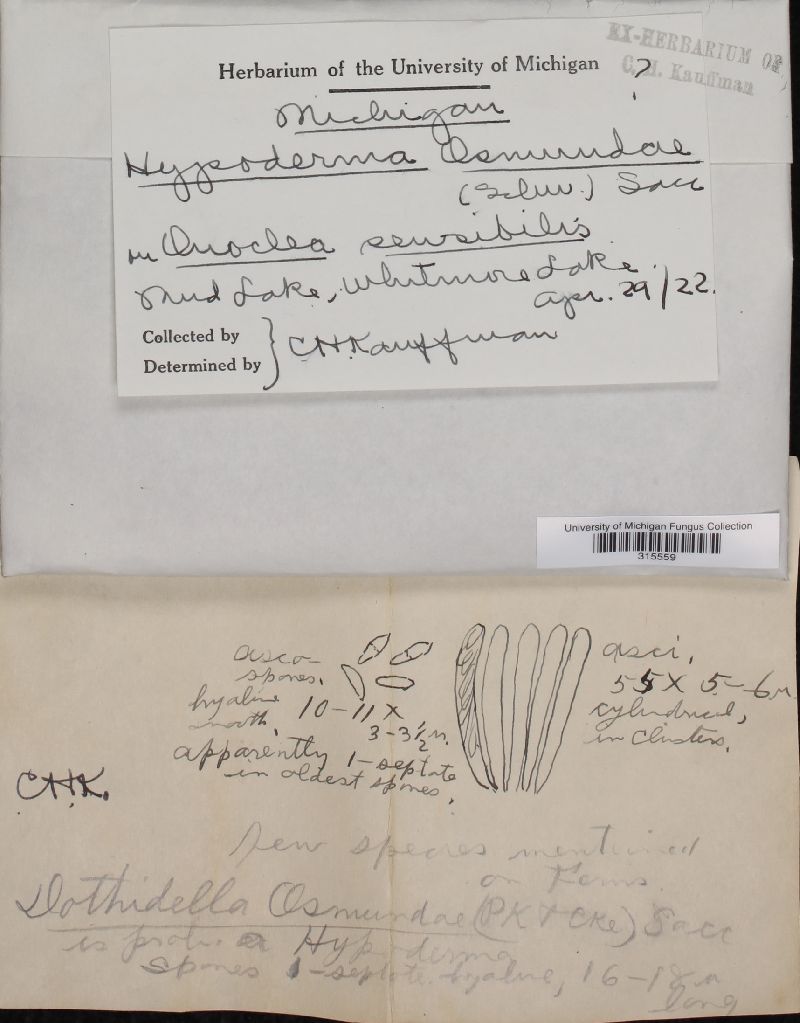 EX-HERBARIUM OF
C. H. Kauffman
Herbarium of the University of Michigan ?
Michigan
Hypoderma Osmundae
(Schw.) Sacc
on Onoclea sensibilis
Mud Lake, Whitmore Lake.
Apr. 29/22.
Collected by
Determined by } CHKauffman
University of Michigan Fungus Collection
315559
asco-
spores,
hyaline
smooth, 10-11 X
3-3½ µ.
apparently 1-septate
in oldest spores.
asci,
55 X 5-6 µ
cylindrical,
in clusters.
C.H.K.
Few species mentioned
on Ferns.
Dothidella Osmundae (PK & CKe) Sacc
is prob. a Hypoderma
spores 1-septate hyaline, 16-18 µ
long